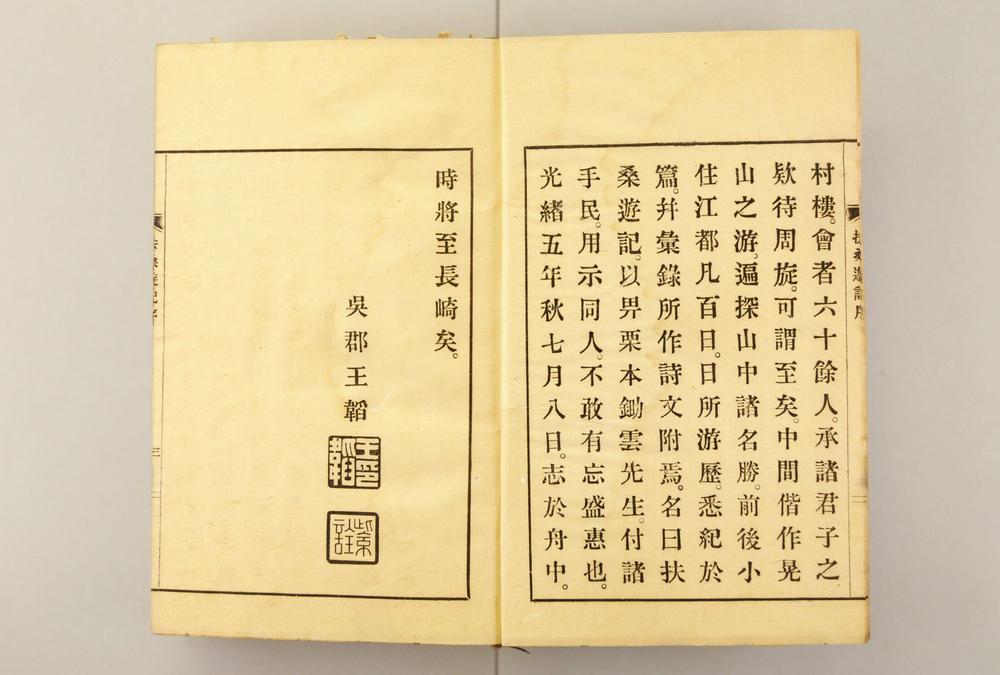 村樓。會者六十餘人。承諸君子之
欵待周旋。可謂至矣。中間偕作晃
山之游。遍探山中諸名勝。前後小
住江都凡百日。日所游歷。悉紀於
篇。幷彙錄所作詩文附焉。名曰扶
桑遊記。以畀栗本鋤雲先生。付諸
手民。用示同人。不敢有忘盛惠也。
光緖五年秋七月八日。志於舟中。
時將至長崎矣。
吳郡王韜
扶桑遊記序
扶桑遊記序
三